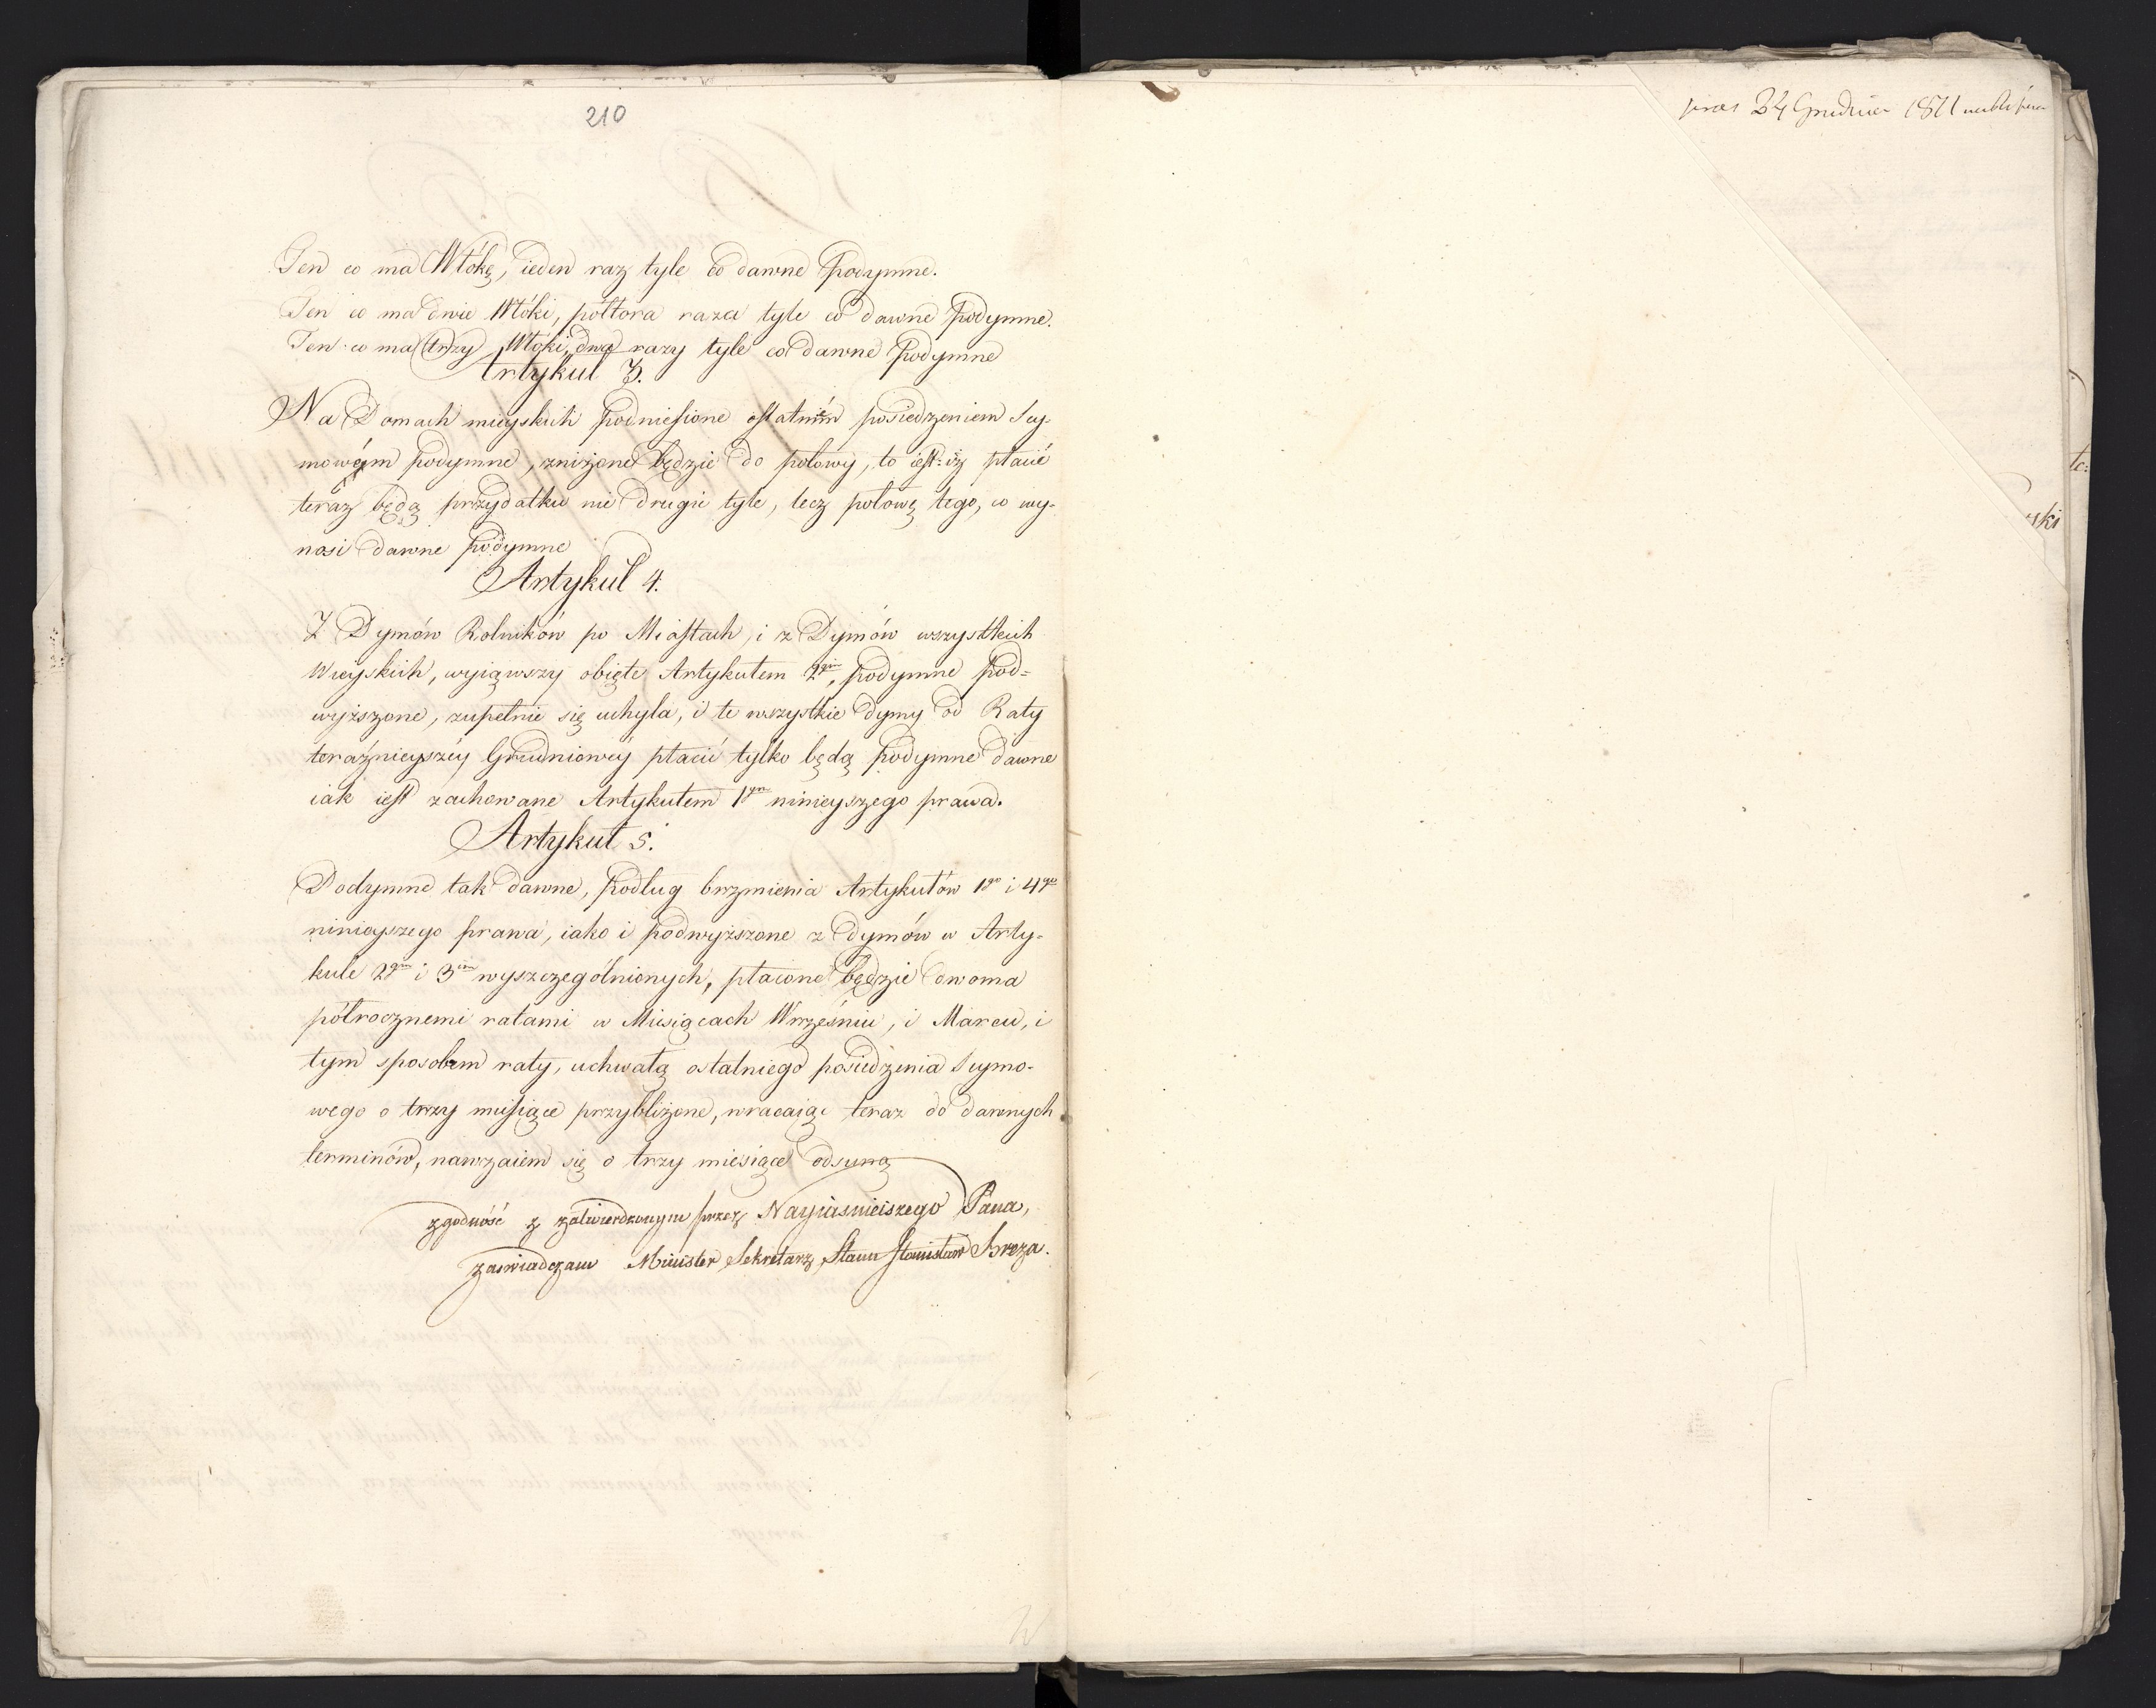 210
Ten co ma Włókę, ieden raz tyle co dawne podymne.
Ten co ma dwie Włóki, półtora raza tyle co dawne podymne.
Ten co ma trzy Włóki, dwa razy tyle co dawne podymne
Artykuł 3.
Na Domach mieyskich podniesione ostatniem posiedzeniem Sey-
mowém podymne, zniżone będzie do połowy, to iest: iż płacić
teraz będą przydatku nie drugie tyle, lecz połowę tego, co wy-
nosi dawne podymne
Artykuł 4.
Z Dymów Rolników po Miastach, i z Dymów wszystkich
Wieyskich, wyiąwszy obięte Artykułem 2gim, podymne pod=
wyższone, zupełnie się uchyla, i te wszystkie dymy od Raty
teraźnieyszéy Grudniowéy płacić tylko będą podymne dawne
iak iest zachowane Artykułem 1ym ninieyszego prawa.
Artykuł 5.
Podymne tak dawne, podług brzmienia Artykułów 1go i 4go
ninieyszego prawa, iako i podwyższone z dymów w Arty-
kule 2gim i 3cim wyszczególnionych, płacone będzie dwoma
półrocznemi ratami w Miesiącach Wrześniu, i Marcu, i
tym sposobem raty, uchwałą ostatniego posiedzenia Seymo-
wego o trzy miesiące przybliżone, wracaiąc teraz do dawnych
terminów, nawzaiem się o trzy miesiące odsuną
zgodność z zatwierdzonym przez Nayiaśnieiszego Pana,
zaświadczam Minister Sekretarz Stanu Stanisław Breza.
pras 24 Grudnia 1811
yki
te: